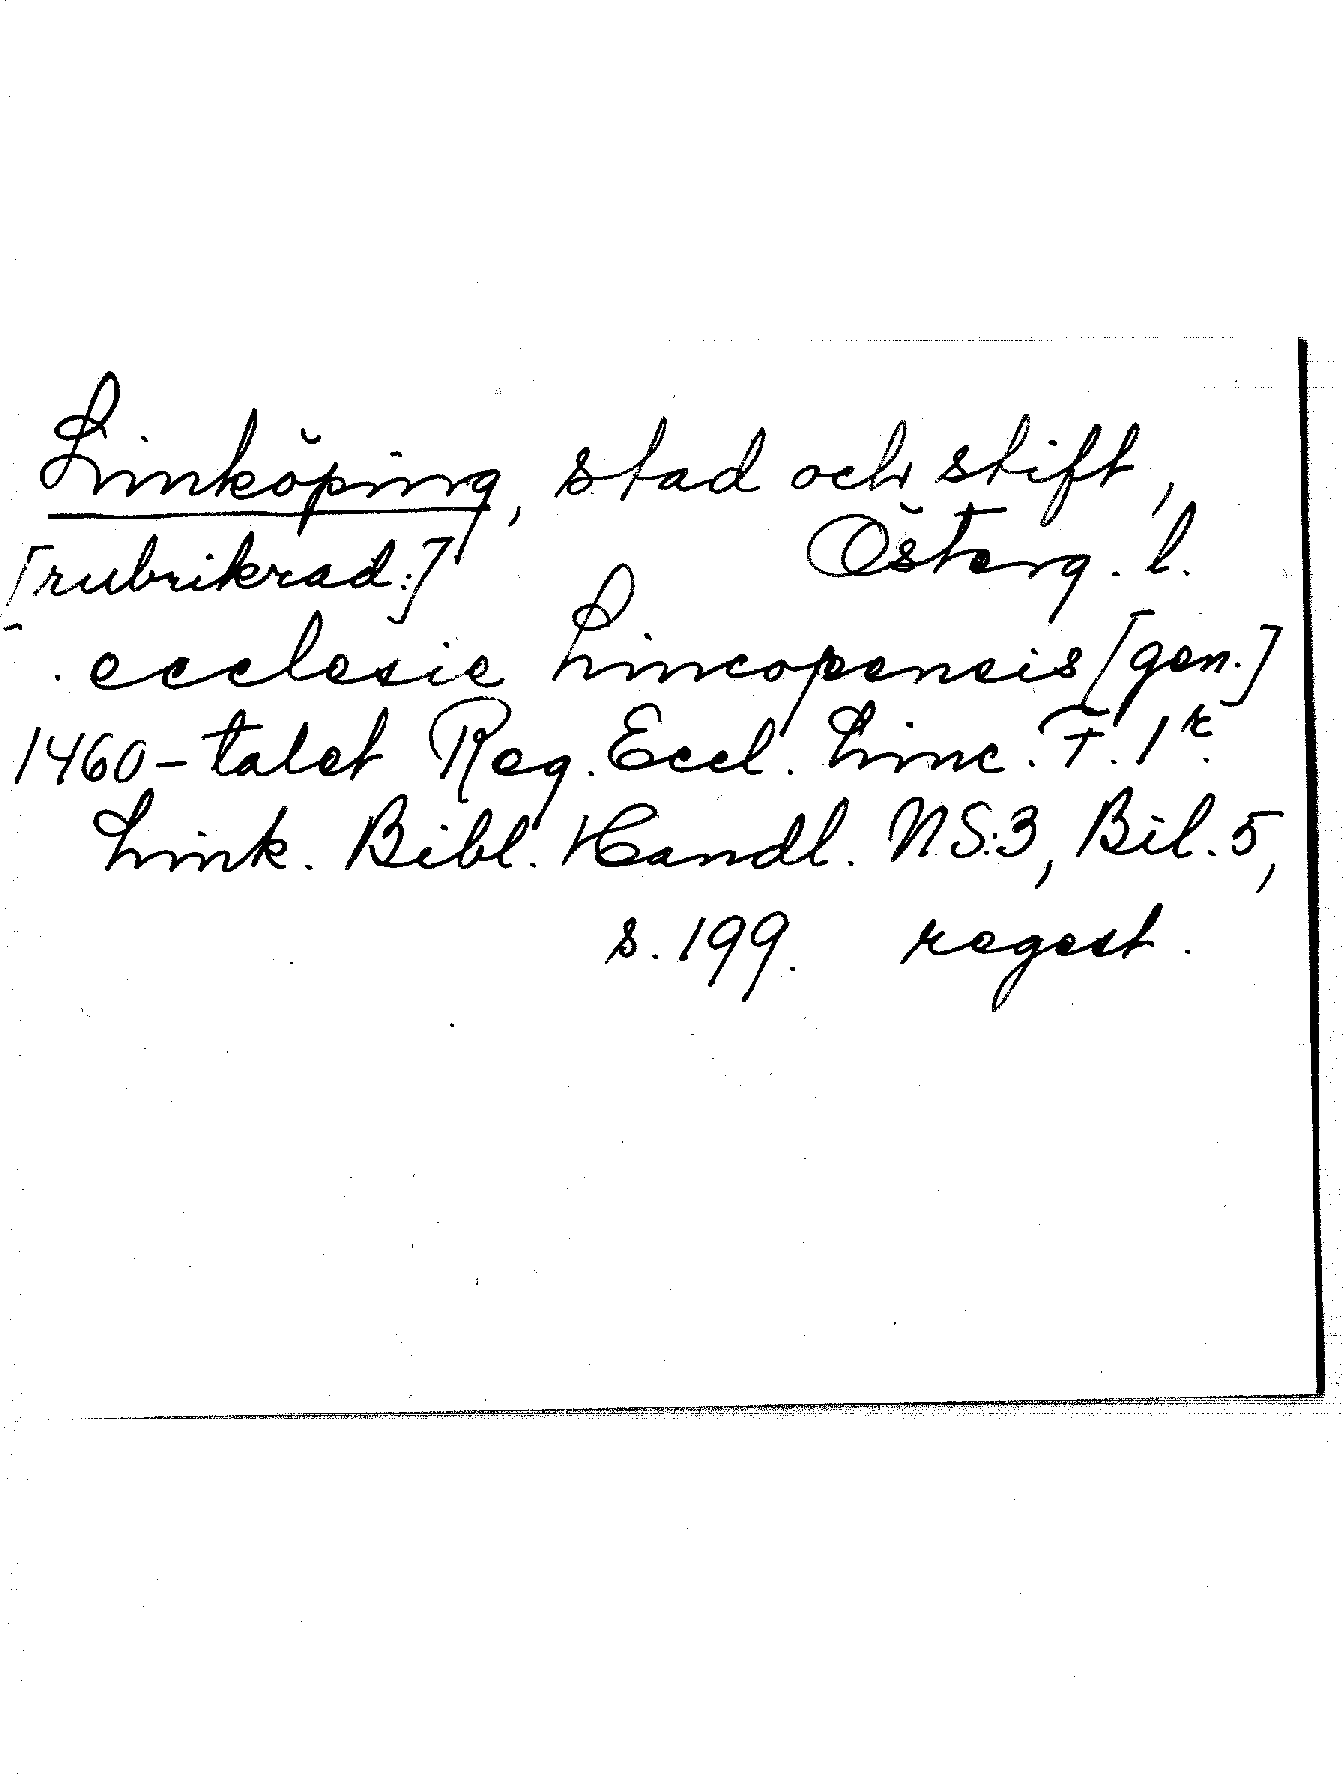 Linköping, stad och stift,
[rubrikrad:] Österg. l.
ecclesie Lincopensis [gen.]
1460-talet Reg. Eccl. Linc. F. 1r.
Link. Bibl. Handl. NS:3, Bil. 5,
s. 199. regest.